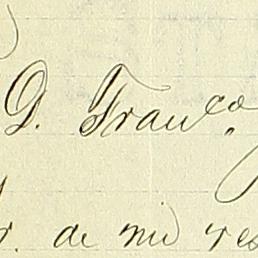 D. Franco.
r. de mi res